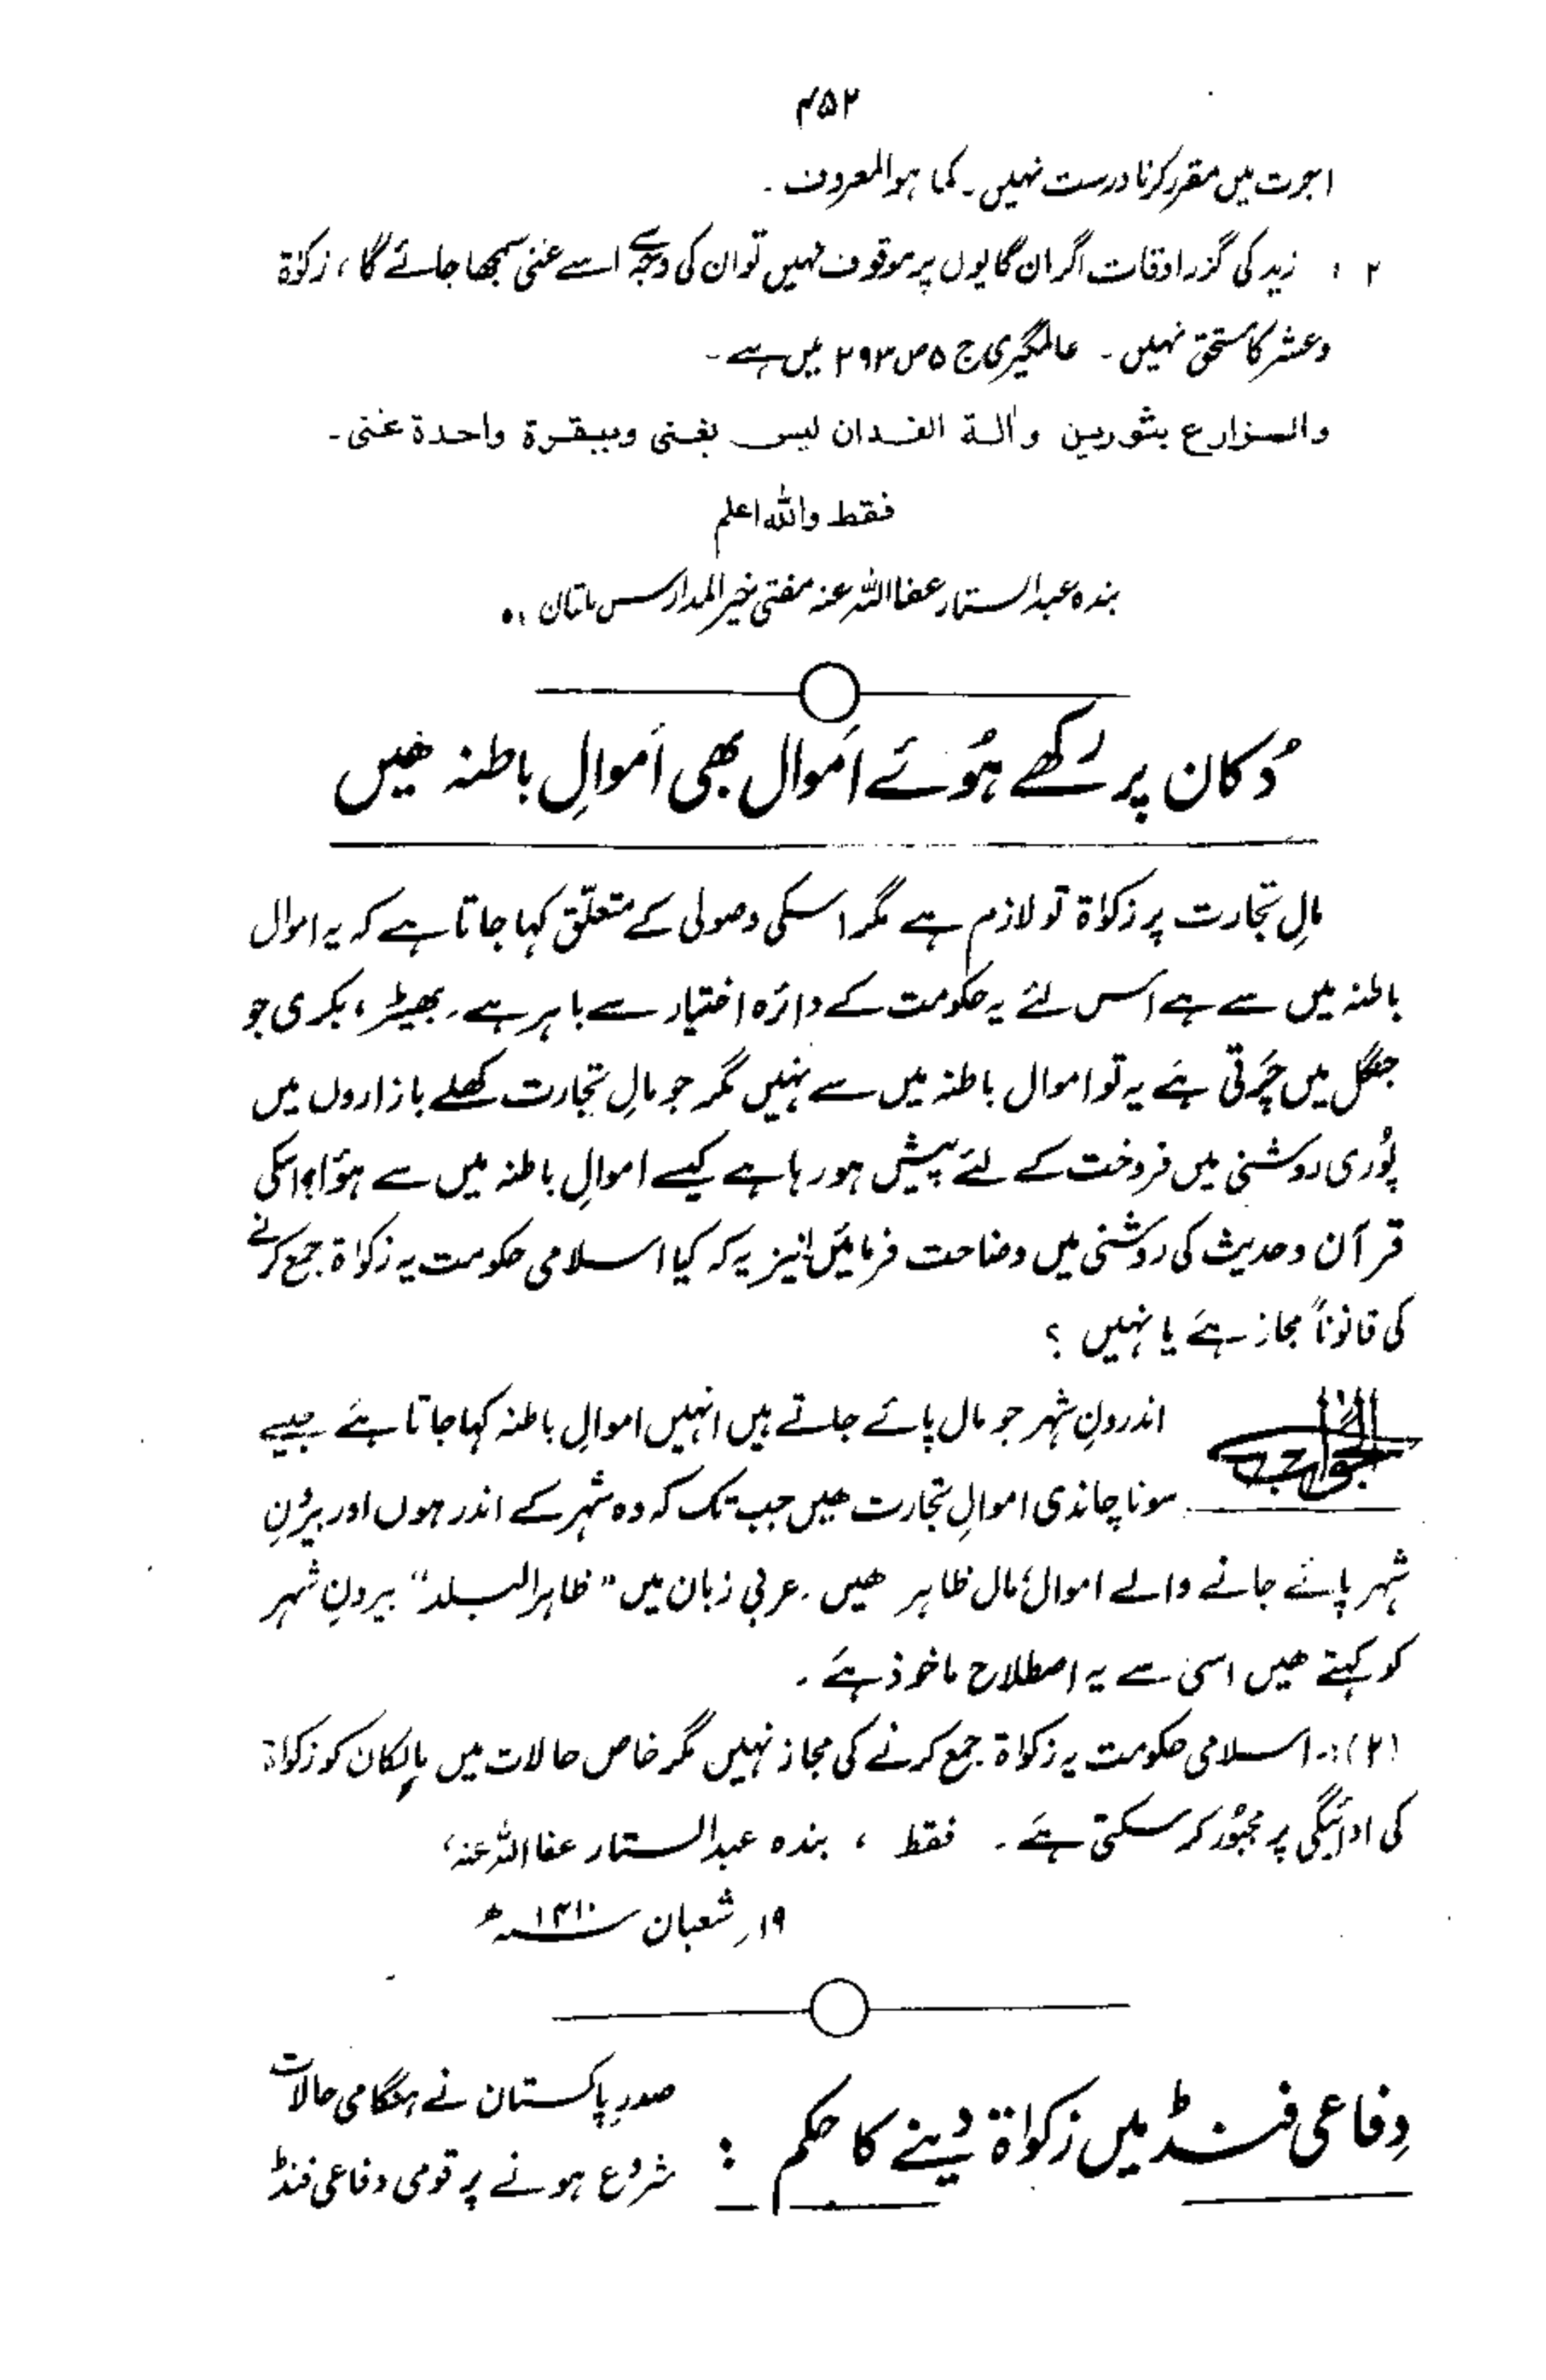 ۴۵۲
اجرت میں مقرر کرنا درست نہیں۔ کما ہو المعروف۔
۲ ؛ زید کی گزر اوقات اگر ان گایوں پر موقوف نہیں تو ان کی وجہ سے اسے غنی سمجھا جائے گا، زکوٰۃ
وعشر کا مستحق نہیں۔ عالمگیری ج ۵ ص ۲۹۳ میں ہے۔
والمزارع بثورين وآلة الفدان ليس بغنى وببقرة واحدة غنى۔
فقط واللہ اعلم
بندہ عبدالستار عفااللہ عنہ مفتی خیرالمدارس ملتان
دُکان پر رکھے ہُوئے اَموال بھی اَموالِ باطنہ ھیں
مالِ تجارت پر زکوٰۃ تو لازم ہے مگر اسکی وصولی کے متعلّق کہا جاتا ہے کہ یہ اموال
باطنہ میں سے ہے اس لئے یہ حکومت کے دائرہ اختیار سے باہر ہے۔ بھیڑ، بکری جو
جنگل میں چَرتی ہے یہ تو اموال باطنہ میں سے نہیں مگر جو مالِ تجارت کھلے بازاروں میں
پُوری روشنی میں فروخت کے لئے پیش ہو رہا ہے کیسے اموالِ باطنہ میں سے ہؤا؟ اسکی
قرآن وحدیث کی روشنی میں وضاحت فرمائیں! نیز یہ کہ کیا اسلامی حکومت یہ زکوٰۃ جمع کرنے
کی قانوناً مجاز ہے یا نہیں ؟
الجواب
اندرونِ شہر جو مال پائے جاتے ہیں انہیں اموالِ باطنہ کہا جاتا ہے جیسے
سونا چاندی اموالِ تجارت ھیں جب تک کہ وہ شہر کے اندر ہوں اور بیرُنِ
شہر پائے جانے والے اموال، مال ظاہر ھیں۔ عربی زبان میں "ظاہر البلد" بیرونِ شہر
کو کہتے ھیں اسی سے یہ اصطلاح ماخوذ ہے۔
(۲):۔ اسلامی حکومت یہ زکوٰۃ جمع کرنے کی مجاز نہیں مگر خاص حالات میں مالکان کو زکوٰۃ
کی ادائیگی پر مجبُور کر سکتی ہے۔ فقط ، بندہ عبدالستار عفااللہ عنہ،
۱۹ر شعبان ۱۴۱۰ھ
دِفاعی فنڈ میں زکوٰۃ دینے کا حکم :
صدرِ پاکستان نے ہنگامی حالات
شروع ہونے پر قومی دفاعی فنڈ